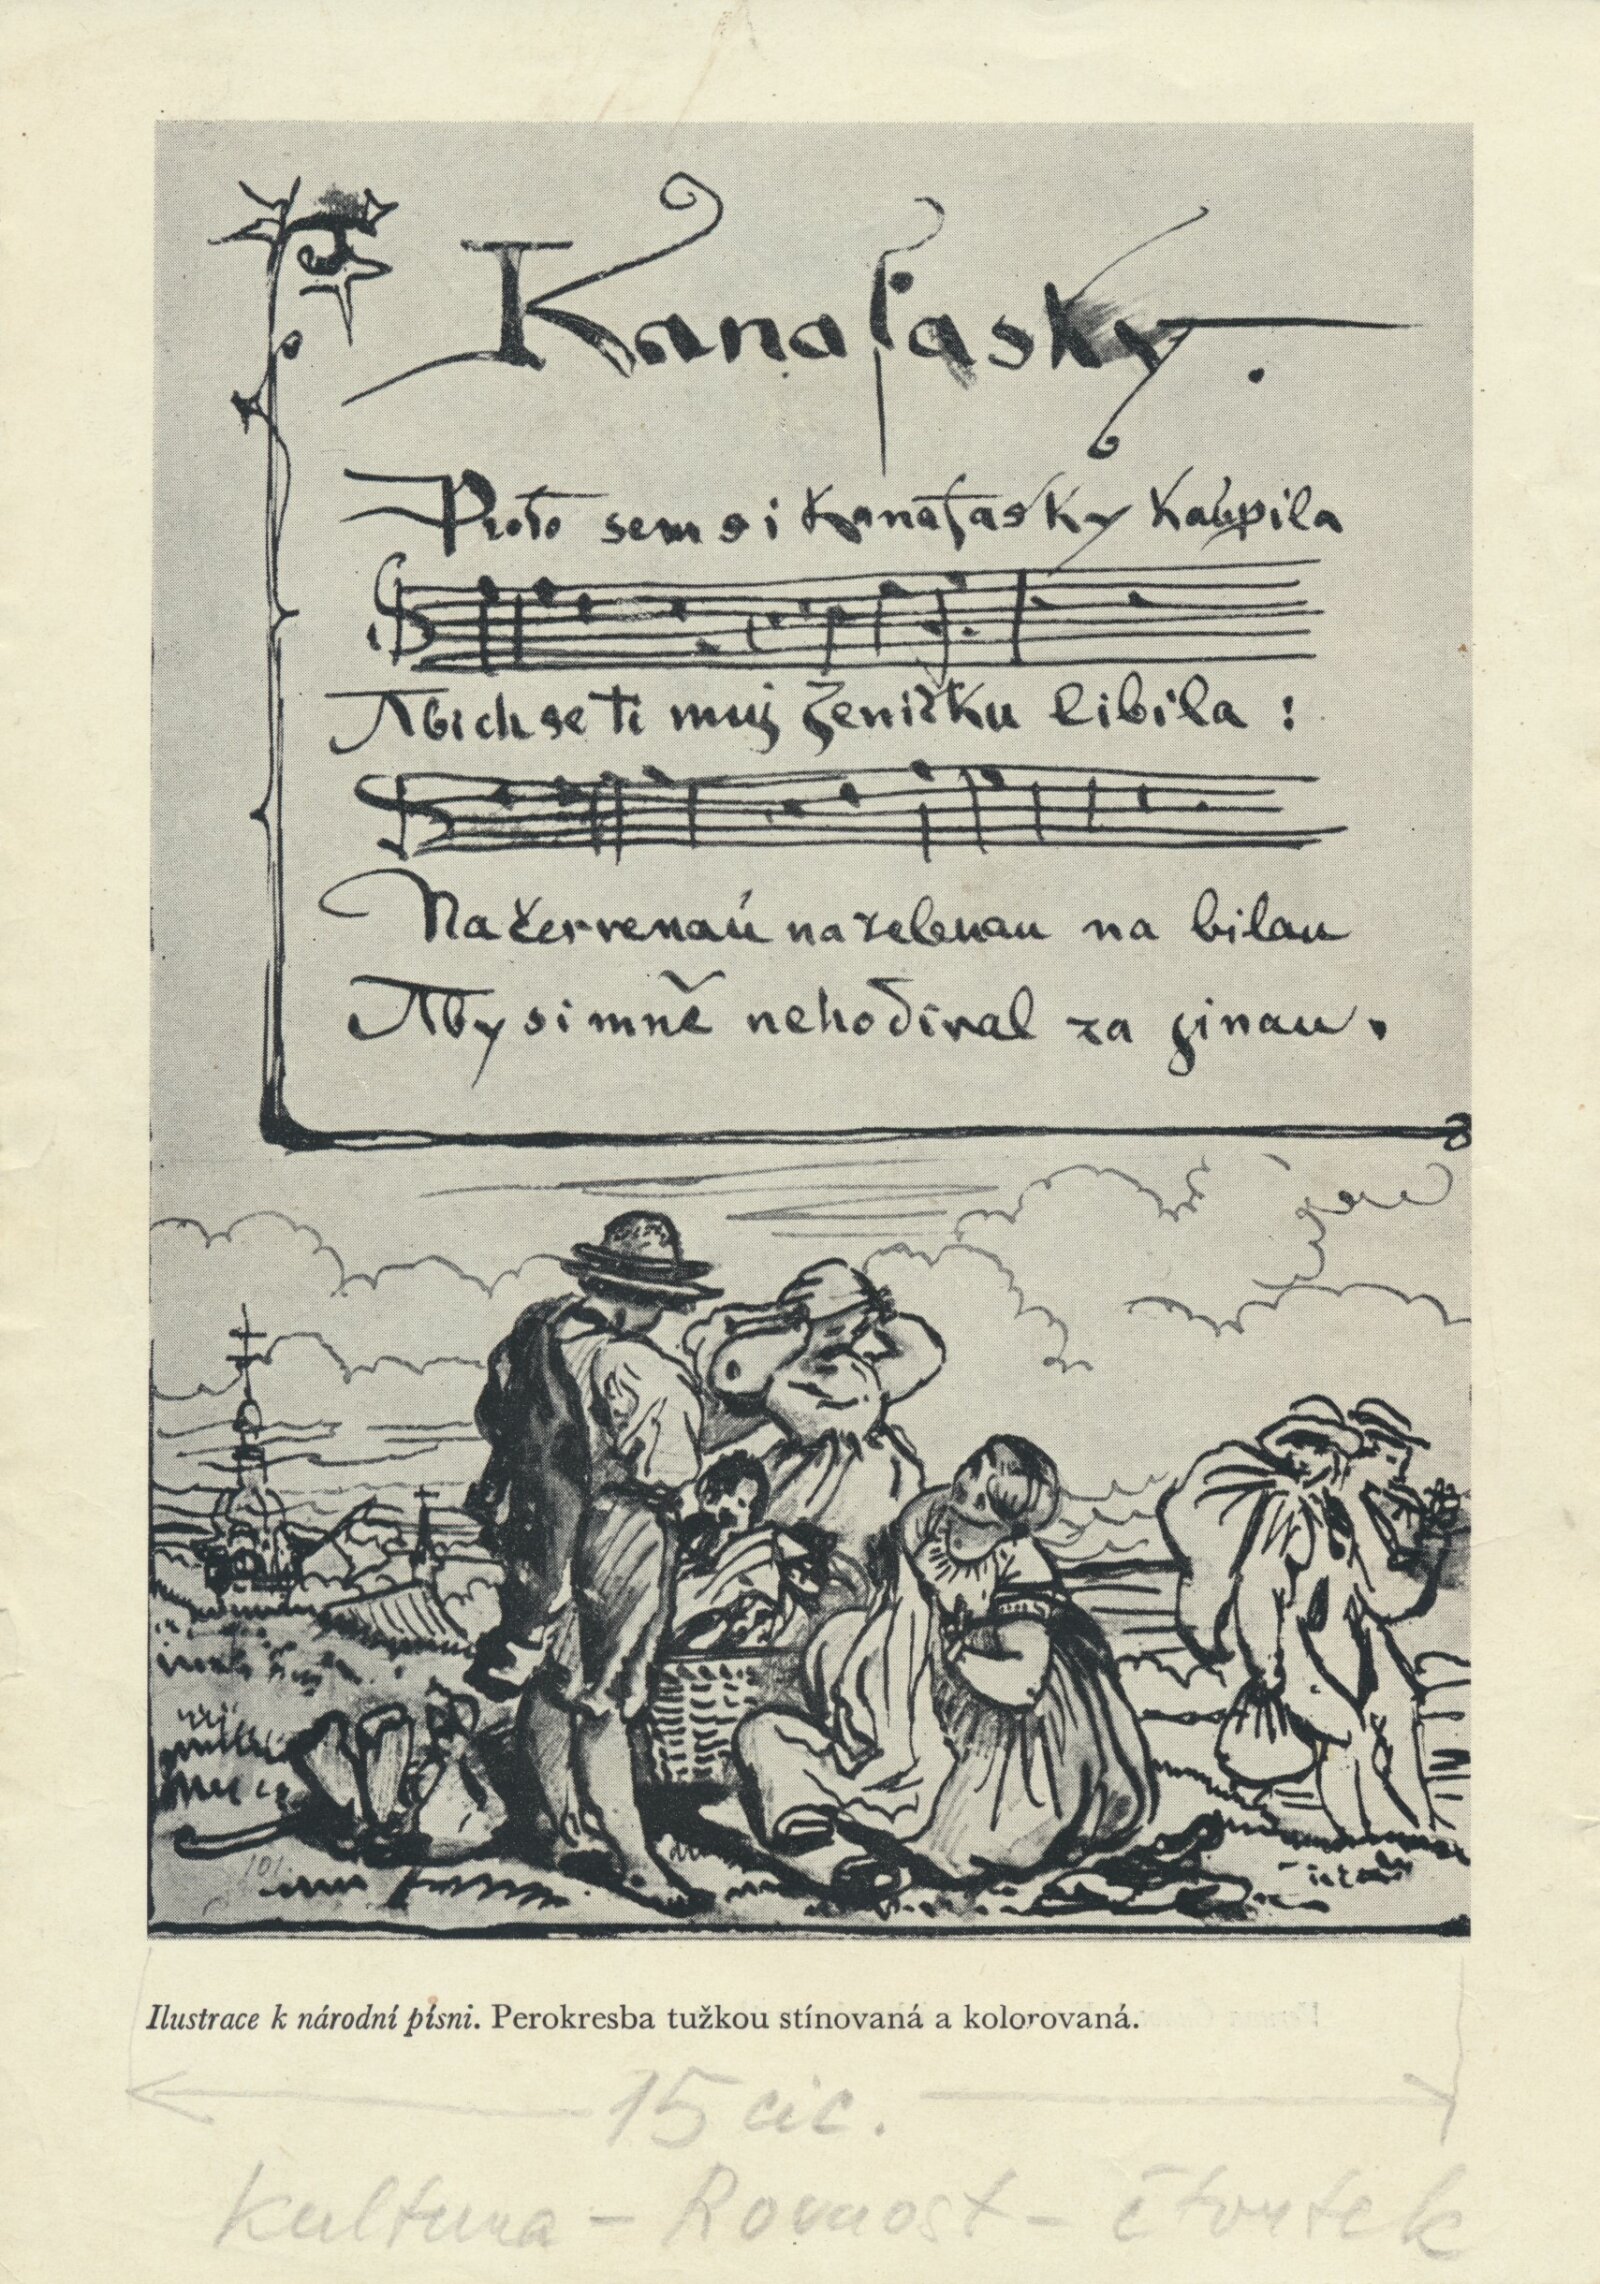 Kanafasky.
Proto sem si Kanafasky Kaupila
Abich se ti muj ženičku libila :
Na červenaú na zelenau na bilau
Aby si mně nehodíval za ginau.
101.
Ilustrace k národní písni. Perokresba tužkou stínovaná a kolorovaná.
15 cic.
Kultura – Rovnost – čtvrtek